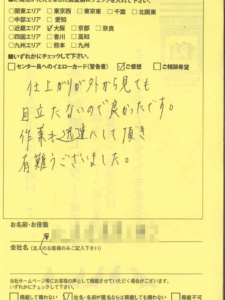 ■関東エリア □東京西 □東京東 □千葉 □北関東
○中部エリア □愛知
○近畿エリア ☑大阪 □京都 □奈良
○四国エリア □香川 □高知
○九州エリア □熊本 □九州
■いずれかにチェックして下さい。
□センター長へのイエローカード(警告書) ☑ご感想 □ご相談希望
仕上がりが外から見ても
目立たないので良かったです。
作業も迅速にして頂き
有難うございました。
お名前・お役職
会社名 (法人のお客様のみご記入下さい)
当社ホームページ等にお客様の声として掲載させていただく場合がございます。
いずれかにチェックして下さい。
□掲載可 ☑社名・名前が匿名ならば掲載しても構わない □掲載不可